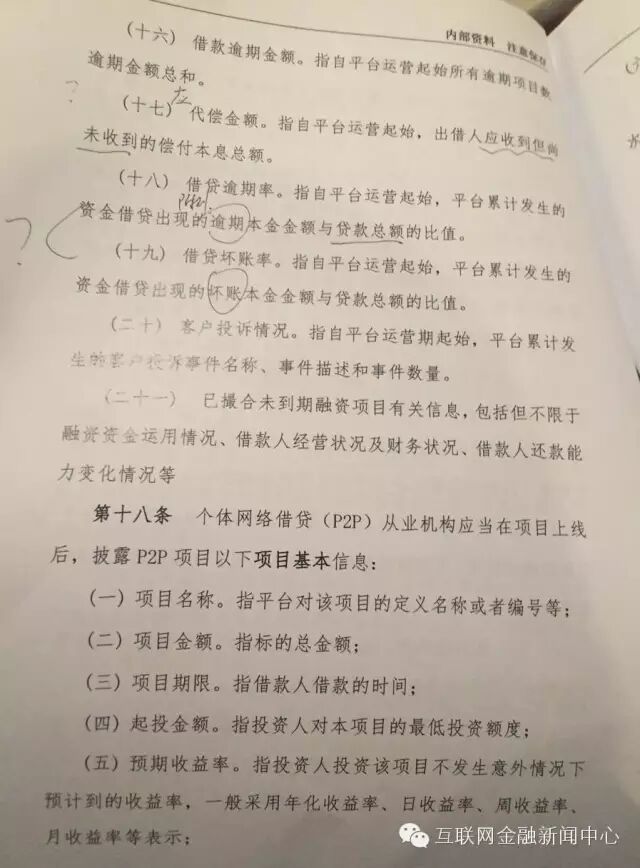 内部资料 注意保存
（十六）借款逾期金额。指自平台运营起始所有逾期项目数
逾期金额总和。
？
应
（十七）代偿金额。指自平台运营起始，出借人应收到但尚
未收到的偿付本息总额。
（十八）借贷逾期率。指自平台运营起始，平台累计发生的
资金借贷出现的逾期本金金额与贷款总额的比值。
？
（十九）借贷坏账率。指自平台运营起始，平台累计发生的
资金借贷出现的坏账本金金额与贷款总额的比值。
（二十）客户投诉情况。指自平台运营期起始，平台累计发
生的客户投诉事件名称、事件描述和事件数量。
（二十一） 已撮合未到期融资项目有关信息，包括但不限于
融资资金运用情况、借款人经营状况及财务状况、借款人还款能
力变化情况等
第十八条 个体网络借贷（P2P）从业机构应当在项目上线
后，披露 P2P 项目以下项目基本信息：
（一）项目名称。指平台对该项目的定义名称或者编号等；
（二）项目金额。指标的总金额；
（三）项目期限。指借款人借款的时间；
（四）起投金额。指投资人对本项目的最低投资额度；
（五）预期收益率。指投资人投资该项目不发生意外情况下
预计到的收益率，一般采用年化收益率、日收益率、周收益率、
月收益率等表示；
互联网金融新闻中心